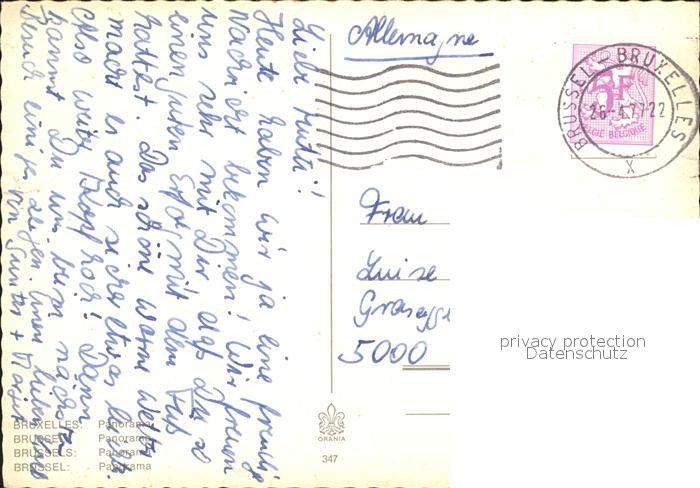 Liebe Mutti!
Heute haben wir ja eine freudige
Nachricht bekommen! Wir freuen
uns sehr mit Dir, daß Du so
einen guten Erfolg mit dem Fuß
hattest. Das schöne warme Wetter
macht es auch sicher etwas leichter.
Also weiter Kopf hoch! Dann
kannst Du uns beim nächsten
lieben
von Günter + Margit
BRUXELLES: Panorama
BRUSSEL: Panorama
BRUSSELS: Panorama
BRÜSSEL: Panorama
ORANIA
347
Allemagne
BRUSSEL - BRUXELLES
26-4.77-22
X
5F
BELGIE BELGIQUE
Frau
Luise
5000
privacy protection
Datenschutz